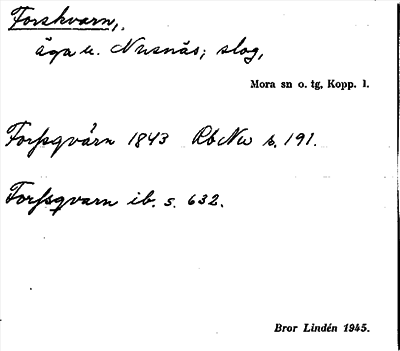 Forskvarn,
äga u. Nusnäs; slog,
Mora sn o. tg, Kopp. l.
Forsqvärn 1843 RbNu s. 191.
Forssqvarn ib. s. 632.
Bror Lindén 1945.